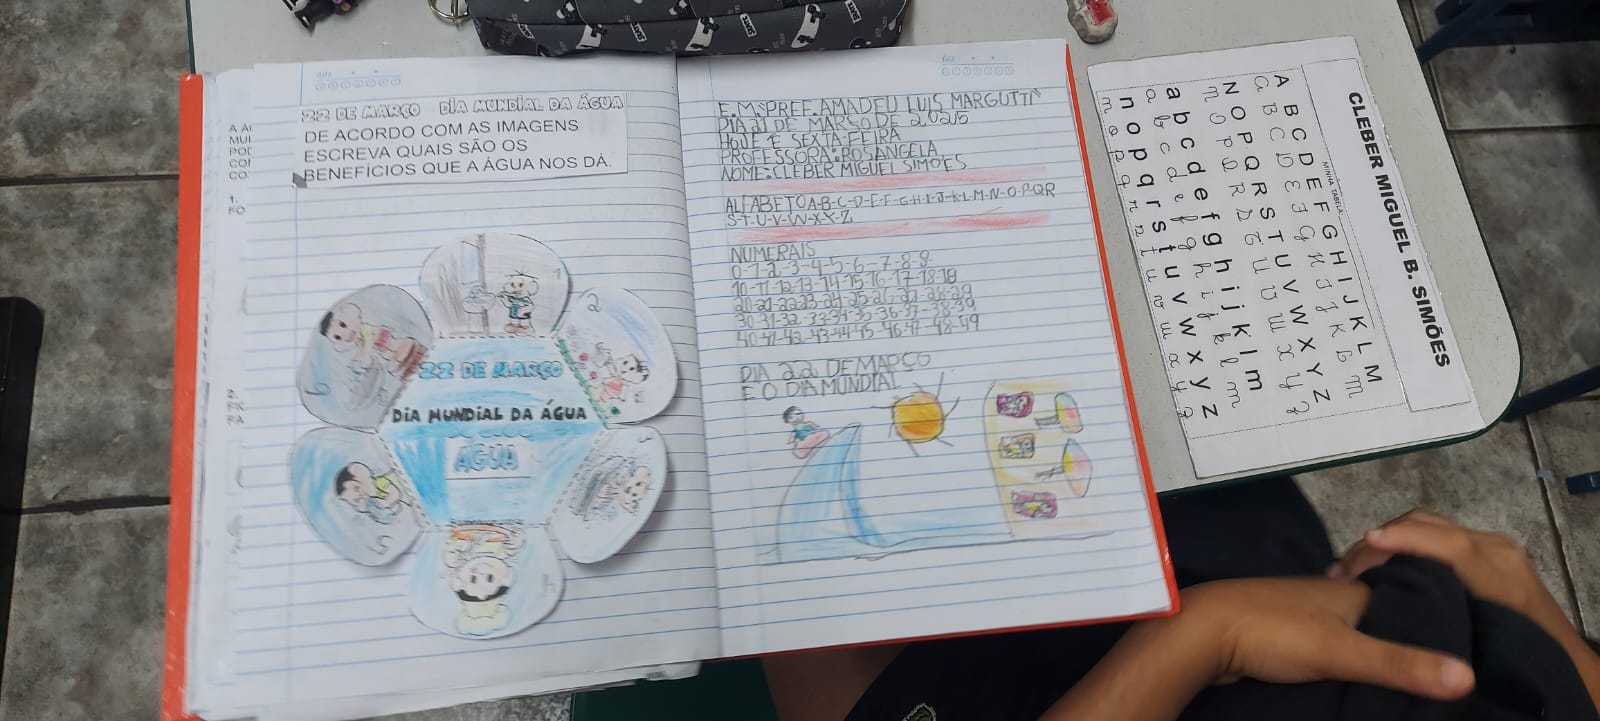 22 DE MARÇO DIA MUNDIAL DA ÁGUA
DE ACORDO COM AS IMAGENS
ESCREVA QUAIS SÃO OS
BENEFÍCIOS QUE A ÁGUA NOS DÁ.
1
2
5
6
22 DE MARÇO
DIA MUNDIAL DA ÁGUA
ÁGUA
E.M.PREF.AMADEU LUIS MARGUTTI
DIA 21 DE MARÇO DE 2.025
HOJE É SEXTA-FEIRA
PROFESSORA: ROSANGELA
NOME: CLEBER MIGUEL SIMOES
ALFABETO A-B-C-D-E-F-G-H-I-J-K-L-M-N-O-P-QR
S-T-U-V-W-X-Y-Z
NUMERAIS
0-1-2-3-4-5-6-7-8-9
10-11-12-13-14-15-16-17-18-19
20-21-22-23-24-25-26-27-28-29
30-31-32-33-34-35-36-37-38-39
40-41-42-43-44-45-46-47-48-49
DIA 22 DE MARÇO
E O DIA MUNDIAL
CLEBER MIGUEL B. SIMÕES
MINHA TABELA:
A B C D E F G H I J K L M
A B C D E F G H I J K L M
N O P Q R S T U V W X Y Z
N O P Q R S T U V W X Y Z
a b c d e f g h i j k l m
a b c d e f g h i j k l m
n o p q r s t u v w x y z
n o p q r s t u v w x y z